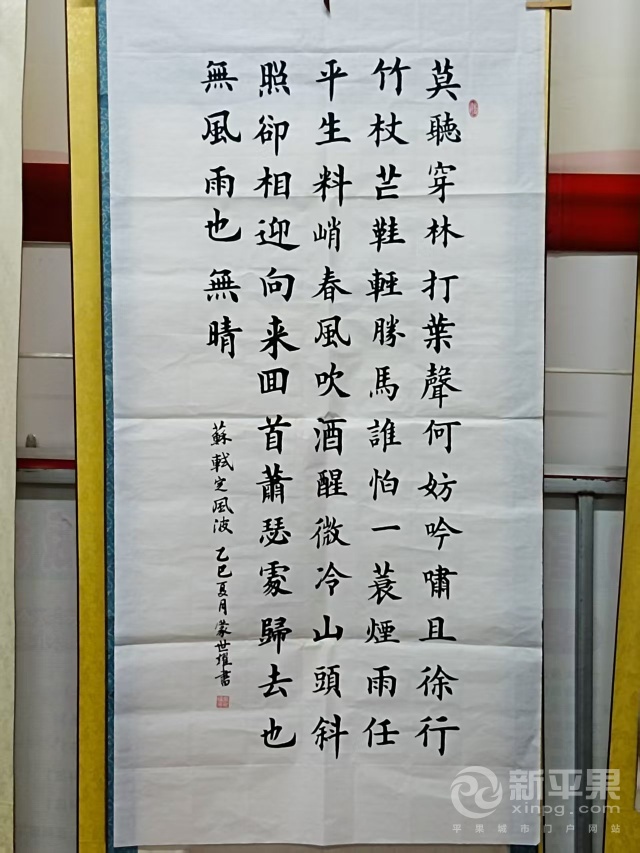 莫聽穿林打葉聲何妨吟嘯且徐行
竹杖芒鞋輕勝馬誰怕一蓑煙雨任
平生料峭春風吹酒醒微冷山頭斜
照卻相迎向来回首蕭瑟處歸去也
無風雨也無晴
蘇軾定風波 乙巳夏月蒙世耀書
新平果
xinpg.com
平果城市门户网站